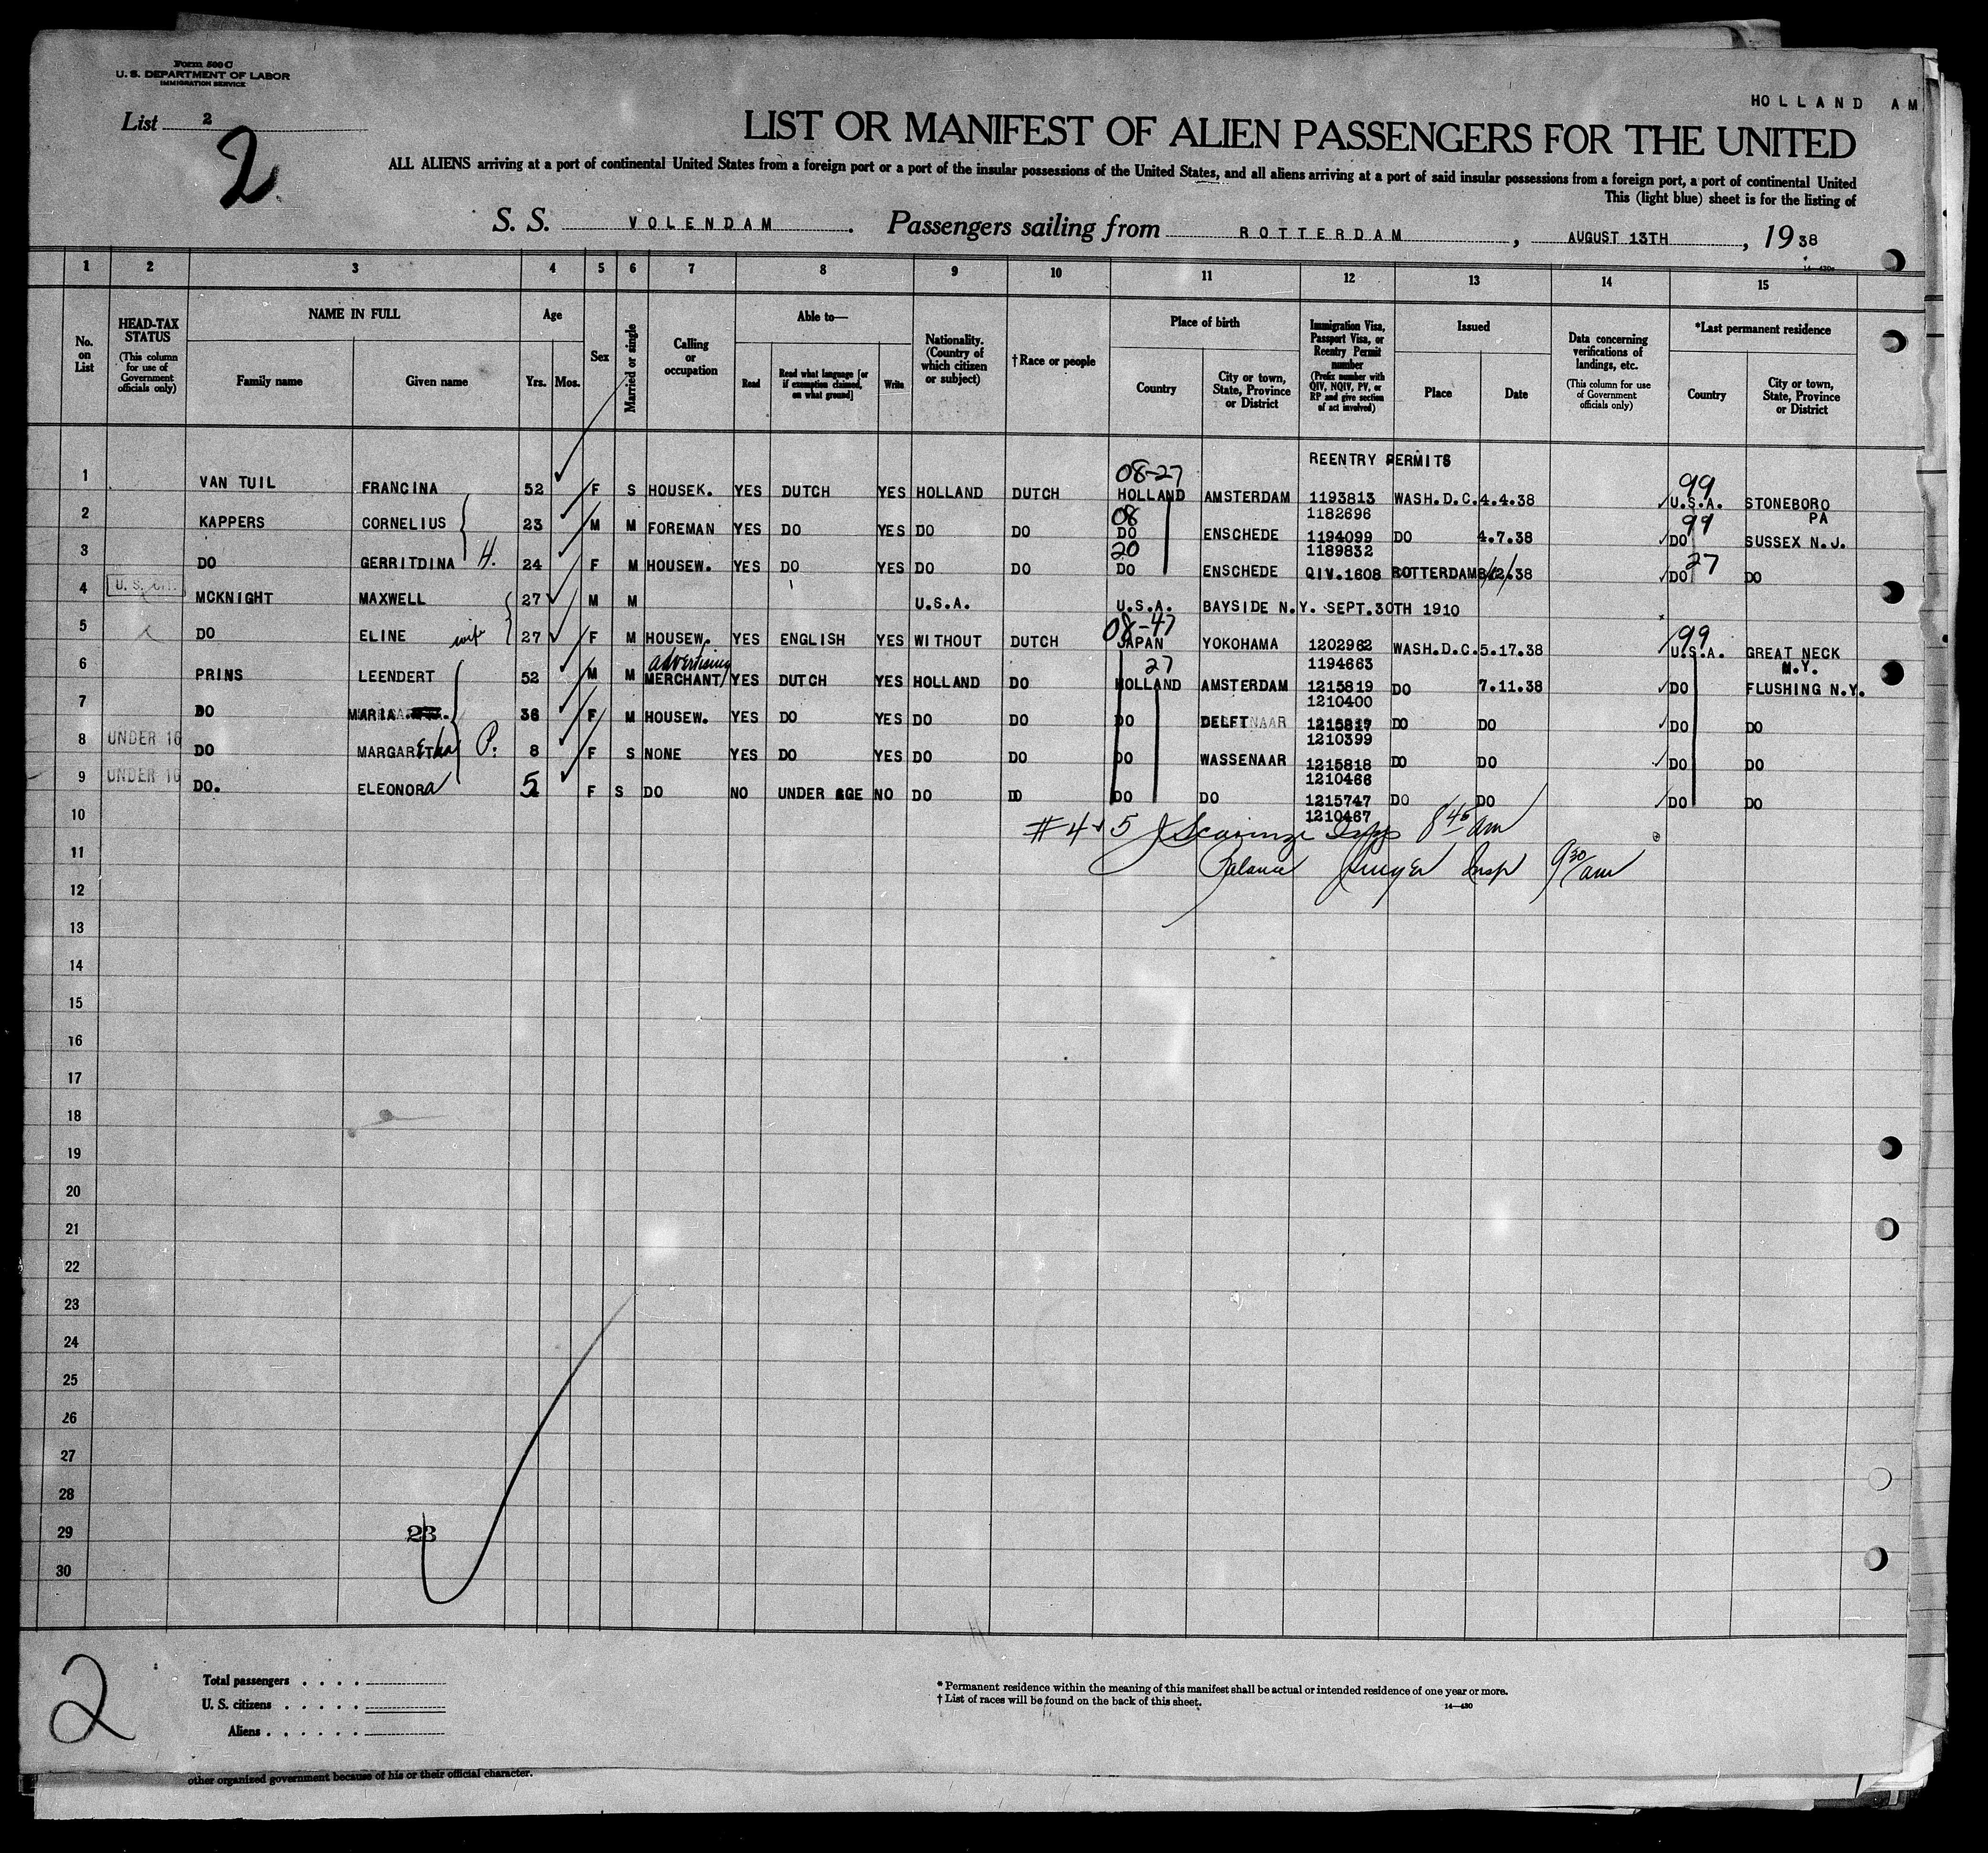 Form 500 C
U. S. DEPARTMENT OF LABOR
IMMIGRATION SERVICE
HOLLAND AM
List 2
2
LIST OR MANIFEST OF ALIEN PASSENGERS FOR THE UNITED
ALL ALIENS arriving at a port of continental United States from a foreign port or a port of the insular possessions of the United States, and all aliens arriving at a port of said insular possessions from a foreign port, a port of continental United
This (light blue) sheet is for the listing of
S. S. VOLENDAM. Passengers sailing from ROTTERDAM, AUGUST 13TH, 1938
14—430a
1 2 3 4 5 6 7 8 9 10 11 12 13 14 15
No. on List
HEAD-TAX STATUS (This column for use of Government officials only)
NAME IN FULL Family name Given name
Age Yrs. Mos.
Sex
Married or single
Calling or occupation
Able to— Read Read what language [or if exemption claimed, on what ground] Write
Nationality. (Country of which citizen or subject)
†Race or people
Place of birth Country City or town, State, Province or District
Immigration Visa, Passport Visa, or Reentry Permit number (Prefix number with QIV, NQIV, PV, or RP and give section of act involved)
Issued Place Date
Data concerning verifications of landings, etc. (This column for use of Government officials only)
*Last permanent residence Country City or town, State, Province or District
REENTRY PERMITS
08-27 99
1 VAN TUIL FRANCINA 52 F S HOUSEK. YES DUTCH YES HOLLAND DUTCH HOLLAND AMSTERDAM 1193813 WASH.D.C. 4.4.38 U.S.A. STONEBORO PA
08 1182696 99
2 KAPPERS CORNELIUS 23 M M FOREMAN YES DO YES DO DO DO ENSCHEDE 1194099 DO 4.7.38 DO SUSSEX N.J.
20 1189832 27
3 DO GERRITDINA H. 24 F M HOUSEW. YES DO YES DO DO DO ENSCHEDE QIV.1608 ROTTERDAM 8/2.38 DO DO
4 U.S. CIT. MCKNIGHT MAXWELL 27 M M U.S.A. U.S.A. BAYSIDE N.Y. SEPT.30TH 1910
08-47 99
5 DO ELINE wife 27 F M HOUSEW. YES ENGLISH YES WITHOUT DUTCH JAPAN YOKOHAMA 1202962 WASH.D.C. 5.17.38 U.S.A. GREAT NECK N.Y.
advertising 27 1194663
6 PRINS LEENDERT 52 M M MERCHANT YES DUTCH YES HOLLAND DO HOLLAND AMSTERDAM 1215819 DO 7.11.38 DO FLUSHING N.Y.
1210400
7 DO MARIA 36 F M HOUSEW. YES DO YES DO DO DO DELFT 1215817 DO DO DO DO
1210399
8 UNDER 16 DO MARGARETHA P. 8 F S NONE YES DO YES DO DO DO WASSENAAR 1215818 DO DO DO DO
1210466
9 UNDER 16 DO. ELEONORA 5 F S DO NO UNDER AGE NO DO DO DO DO 1215747 DO DO DO DO
1210467
10 #4+5 8 45 am
11 Insp 9 30 am
12
13
14
15
16
17
18
19
20
21
22
23
24
25
26
27
28
29 23
30
2
Total passengers
U. S. citizens
Aliens
* Permanent residence within the meaning of this manifest shall be actual or intended residence of one year or more.
† List of races will be found on the back of this sheet.
14—430
other organized government because of his or their official character.